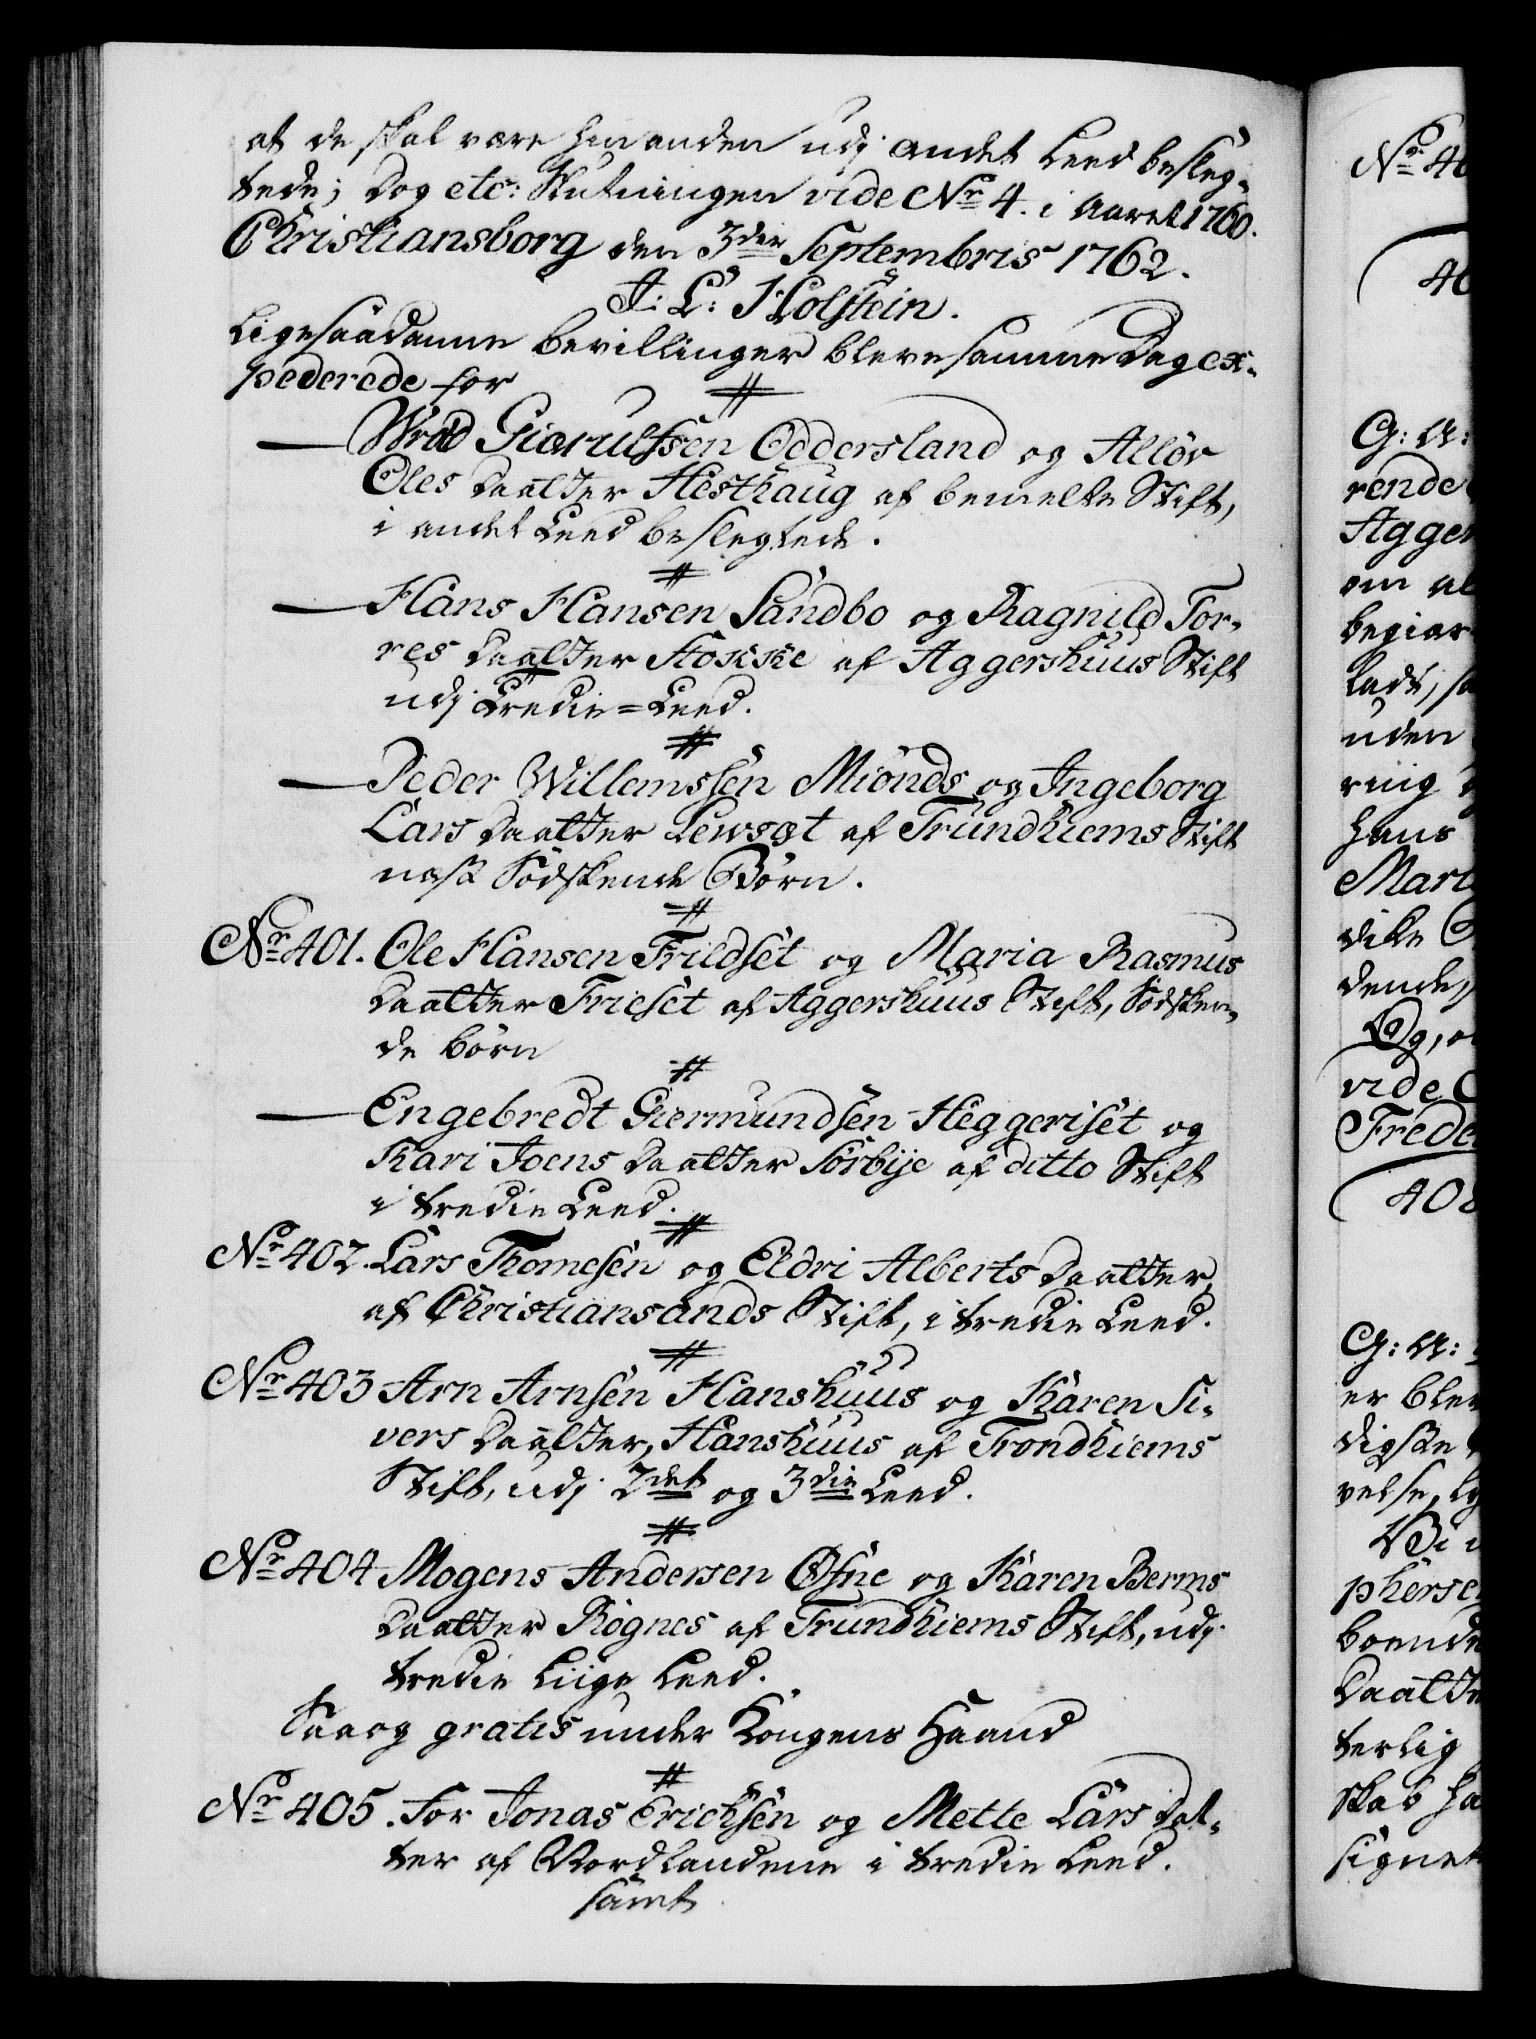 at de skal være hinanden udj andet Leed beslæg-
tede; Dog etc: Slutningen vide No 4. i Aaret 1760.
Christiansborg den 3die Septembris 1762.
J: L: Holstein.
Ligesaadanne bevillinger bleve samme Dag ex-
pederede for
Wraad Giærulfsen Oddersland og Allöv
Oles Daatter Hesthaug af bemelte Stift,
i andet Leed beslegtede.
Hans Hansen Sandbo og Ragnild Tor-
res Daatter Stokke af Aggershuus Stift
udj Tredie=Leed.
Peder Willemssen Miönds og Ingeborg
Lars Daatter Lewsæt af Trundhiems Stift
næst Södskende Börn.
No 401. Ole Hansen Frildset og Maria Rasmus
Daatter Frieset af Aggershuus Stift, Södsken-
de börn
Engebredt Giermundsen Heggeriset og
Kari Joens Daatter Sörbye af ditto Stift
i tredie Leed.
No 402. Lars Thomesen og Eldri Alberts Daatter,
af Christiansands Stift, i tredie Leed.
No 403 Arn Arnsen Hanshuus og Karen Si-
vers Daatter, Hanshuus af Trondhiems
Stift, udj 2det og 3die Leed.
No 404 Mogens Andersen Øfne og Karen Berms
Daatter Rognes af Trundhiems Stift, udj
tredie Liige Leed.
Saa og gratis under Kongens Haand
No 405. For Jonas Erichsen og Mette Lars Dat-
ter af Nordlandene i tredie Leed.
samt
No 40
40
G: A:
rende
Agger
om at
begiær
lade, s
uden
ring
hans
Mart
dike
dende,
Og, o
vide
Frede
408
G: A:
er blev
digste
velse, l
Vi
pherse
boende
Daatte
terlig
skab ha
signet